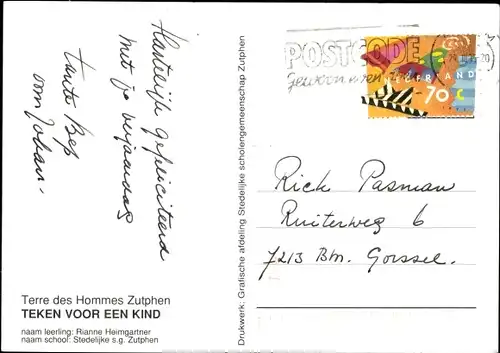 Hartelijk gefeliciteerd
met je verjaardag
Tante Bep
oom Johan.
Terre des Hommes Zutphen
TEKEN VOOR EEN KIND
naam leerling: Rianne Heimgartner
naam school: Stedelijke s.g. Zutphen
Drukwerk: Grafische afdeling Stedelijke scholengemeenschap Zutphen
POSTCODE
gewoon
NEDERLAND
70 c
Rick Pasman
Ruiterweg 6
7213 Bm. Gorssel.